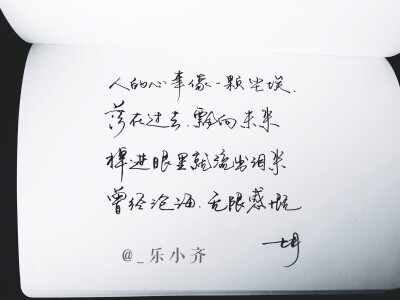 人的心事像一颗尘埃.
落在过去.飘向未来
掉进眼里就流出泪来
曾经沧海.无限感慨
@_乐小齐